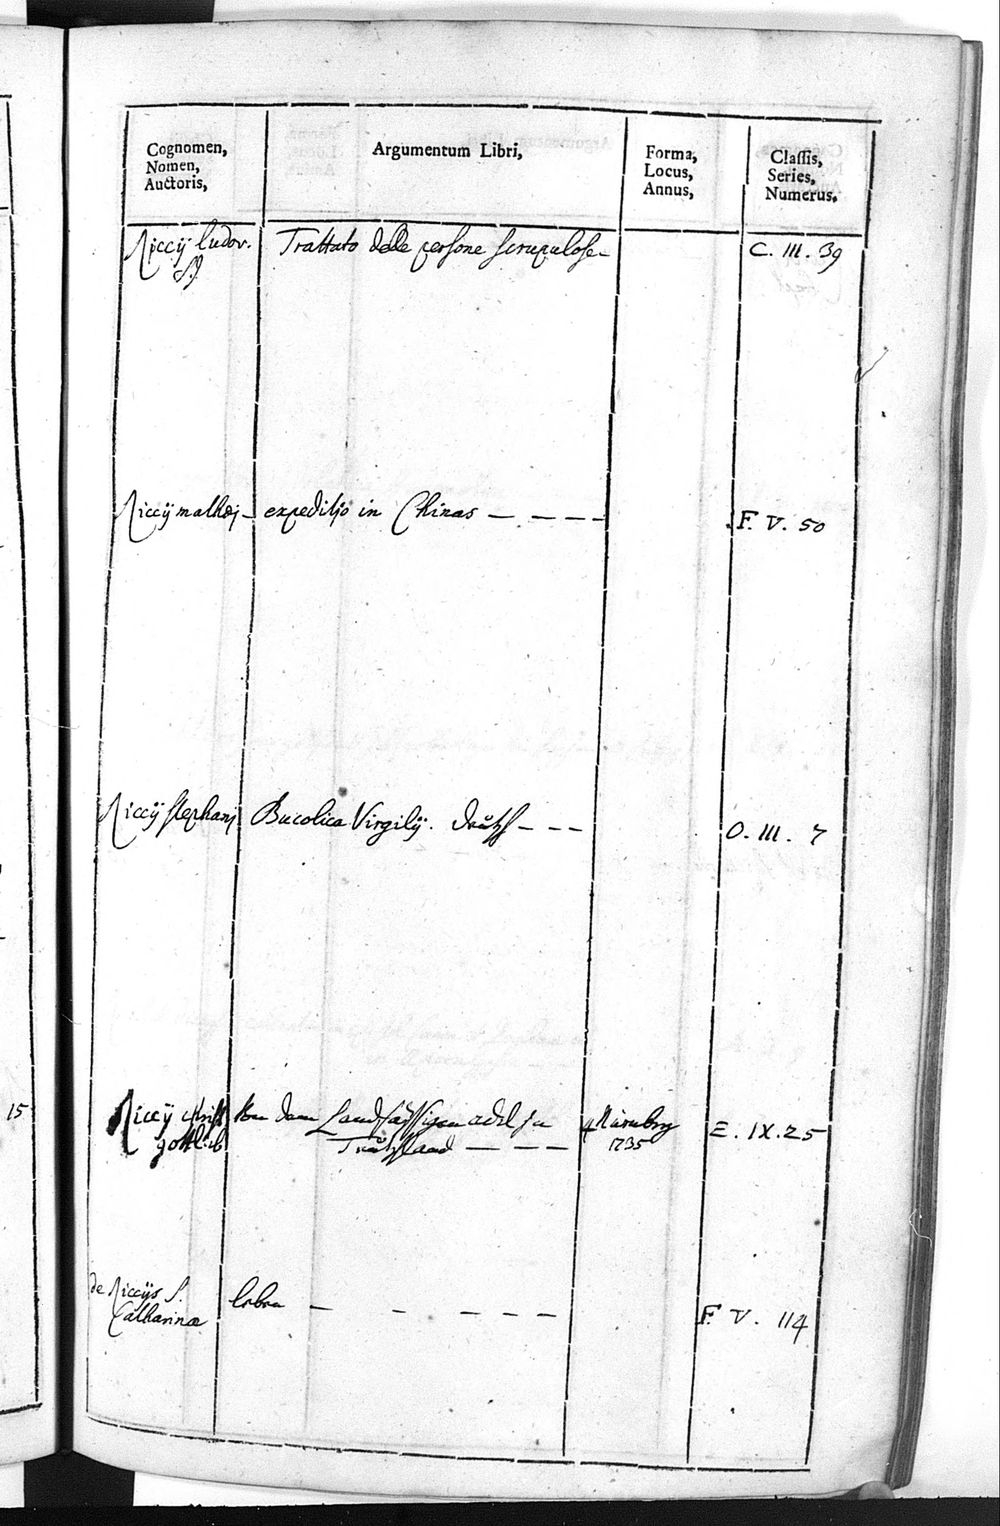 Cognomen,
Nomen,
Auctoris,
Argumentum Libri,
Forma,
Locus,
Annus,
Classis,
Series,
Numerus.
Riccij ludov. Trattato dele persone scrupulose - C. III. 39
S.J.
Riccij mathej - expeditio in Chinas - - - - F. V. 50
Riccij stephanj Bucolica Virgilij. - - - O. III. 7
Riccij christ Von dem Landsässigen adel in 4 Nürnberg E. IX. 25
gottlieb - - - - 1735
15
de Riccijs S. leben - - - - - F. V. 114
Catharinæ